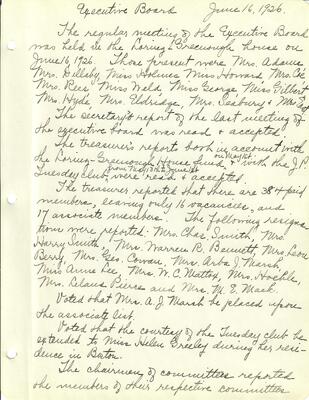 Executive Board June 16, 1926.
The regular meeting of the Executive Board
was held in the Loring-Greenough house on
June 16, 1926. Those present were Mrs. Adams,
Mrs. Miss Holmes Miss Howard, Mrs.
Mrs. Rees Miss Wald, Miss George Miss Gilbert
Mrs. Hyde, Mrs. Eldridge, Mrs. Seabury &
The secretary's report of the last meeting of
the executive board was read & accepted.
The treasurer's reports both in account with
the Loring-Greenough House fund & with the J.P.
Tuesday club were read & accepted.
The treasurer reported that there are 384 paid
members, leaving only 16 vacancies, and
17 associate members. The following resigna
tions were reported: Mrs. Chas. Smith, Mrs.
Harry Smith, Mrs. Warren R. Bennett, Mrs. Leon
Berry, Mrs. Geo. Cowan, Mrs. Arba J. Marsh,
Miss Anne Lee, Mrs. W. C. Mattox, Mrs.
Mrs. Pierce and Mrs. Mack.
Voted that Mrs. A. J. Marsh be placed upon
the associate list.
Voted that the courtesy of the Tuesday club be
extended to Miss Helen Greeley during her resi-
dence in Boston.
The chairmen of committees reported
the members of their respective committees